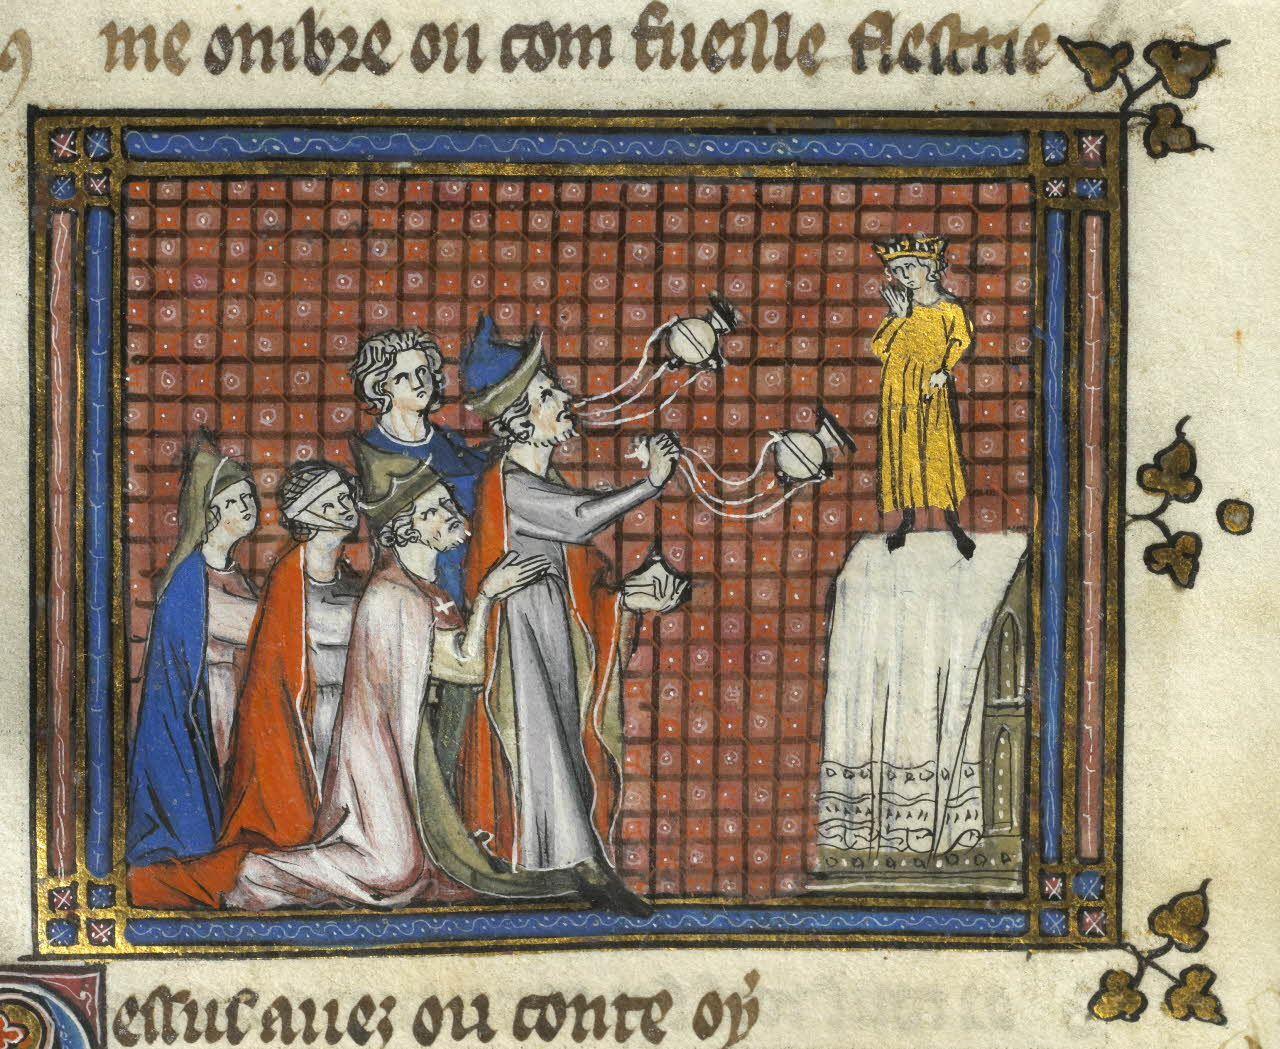 me ombre ou com fueille flestrie
essus auez ou conte oÿ